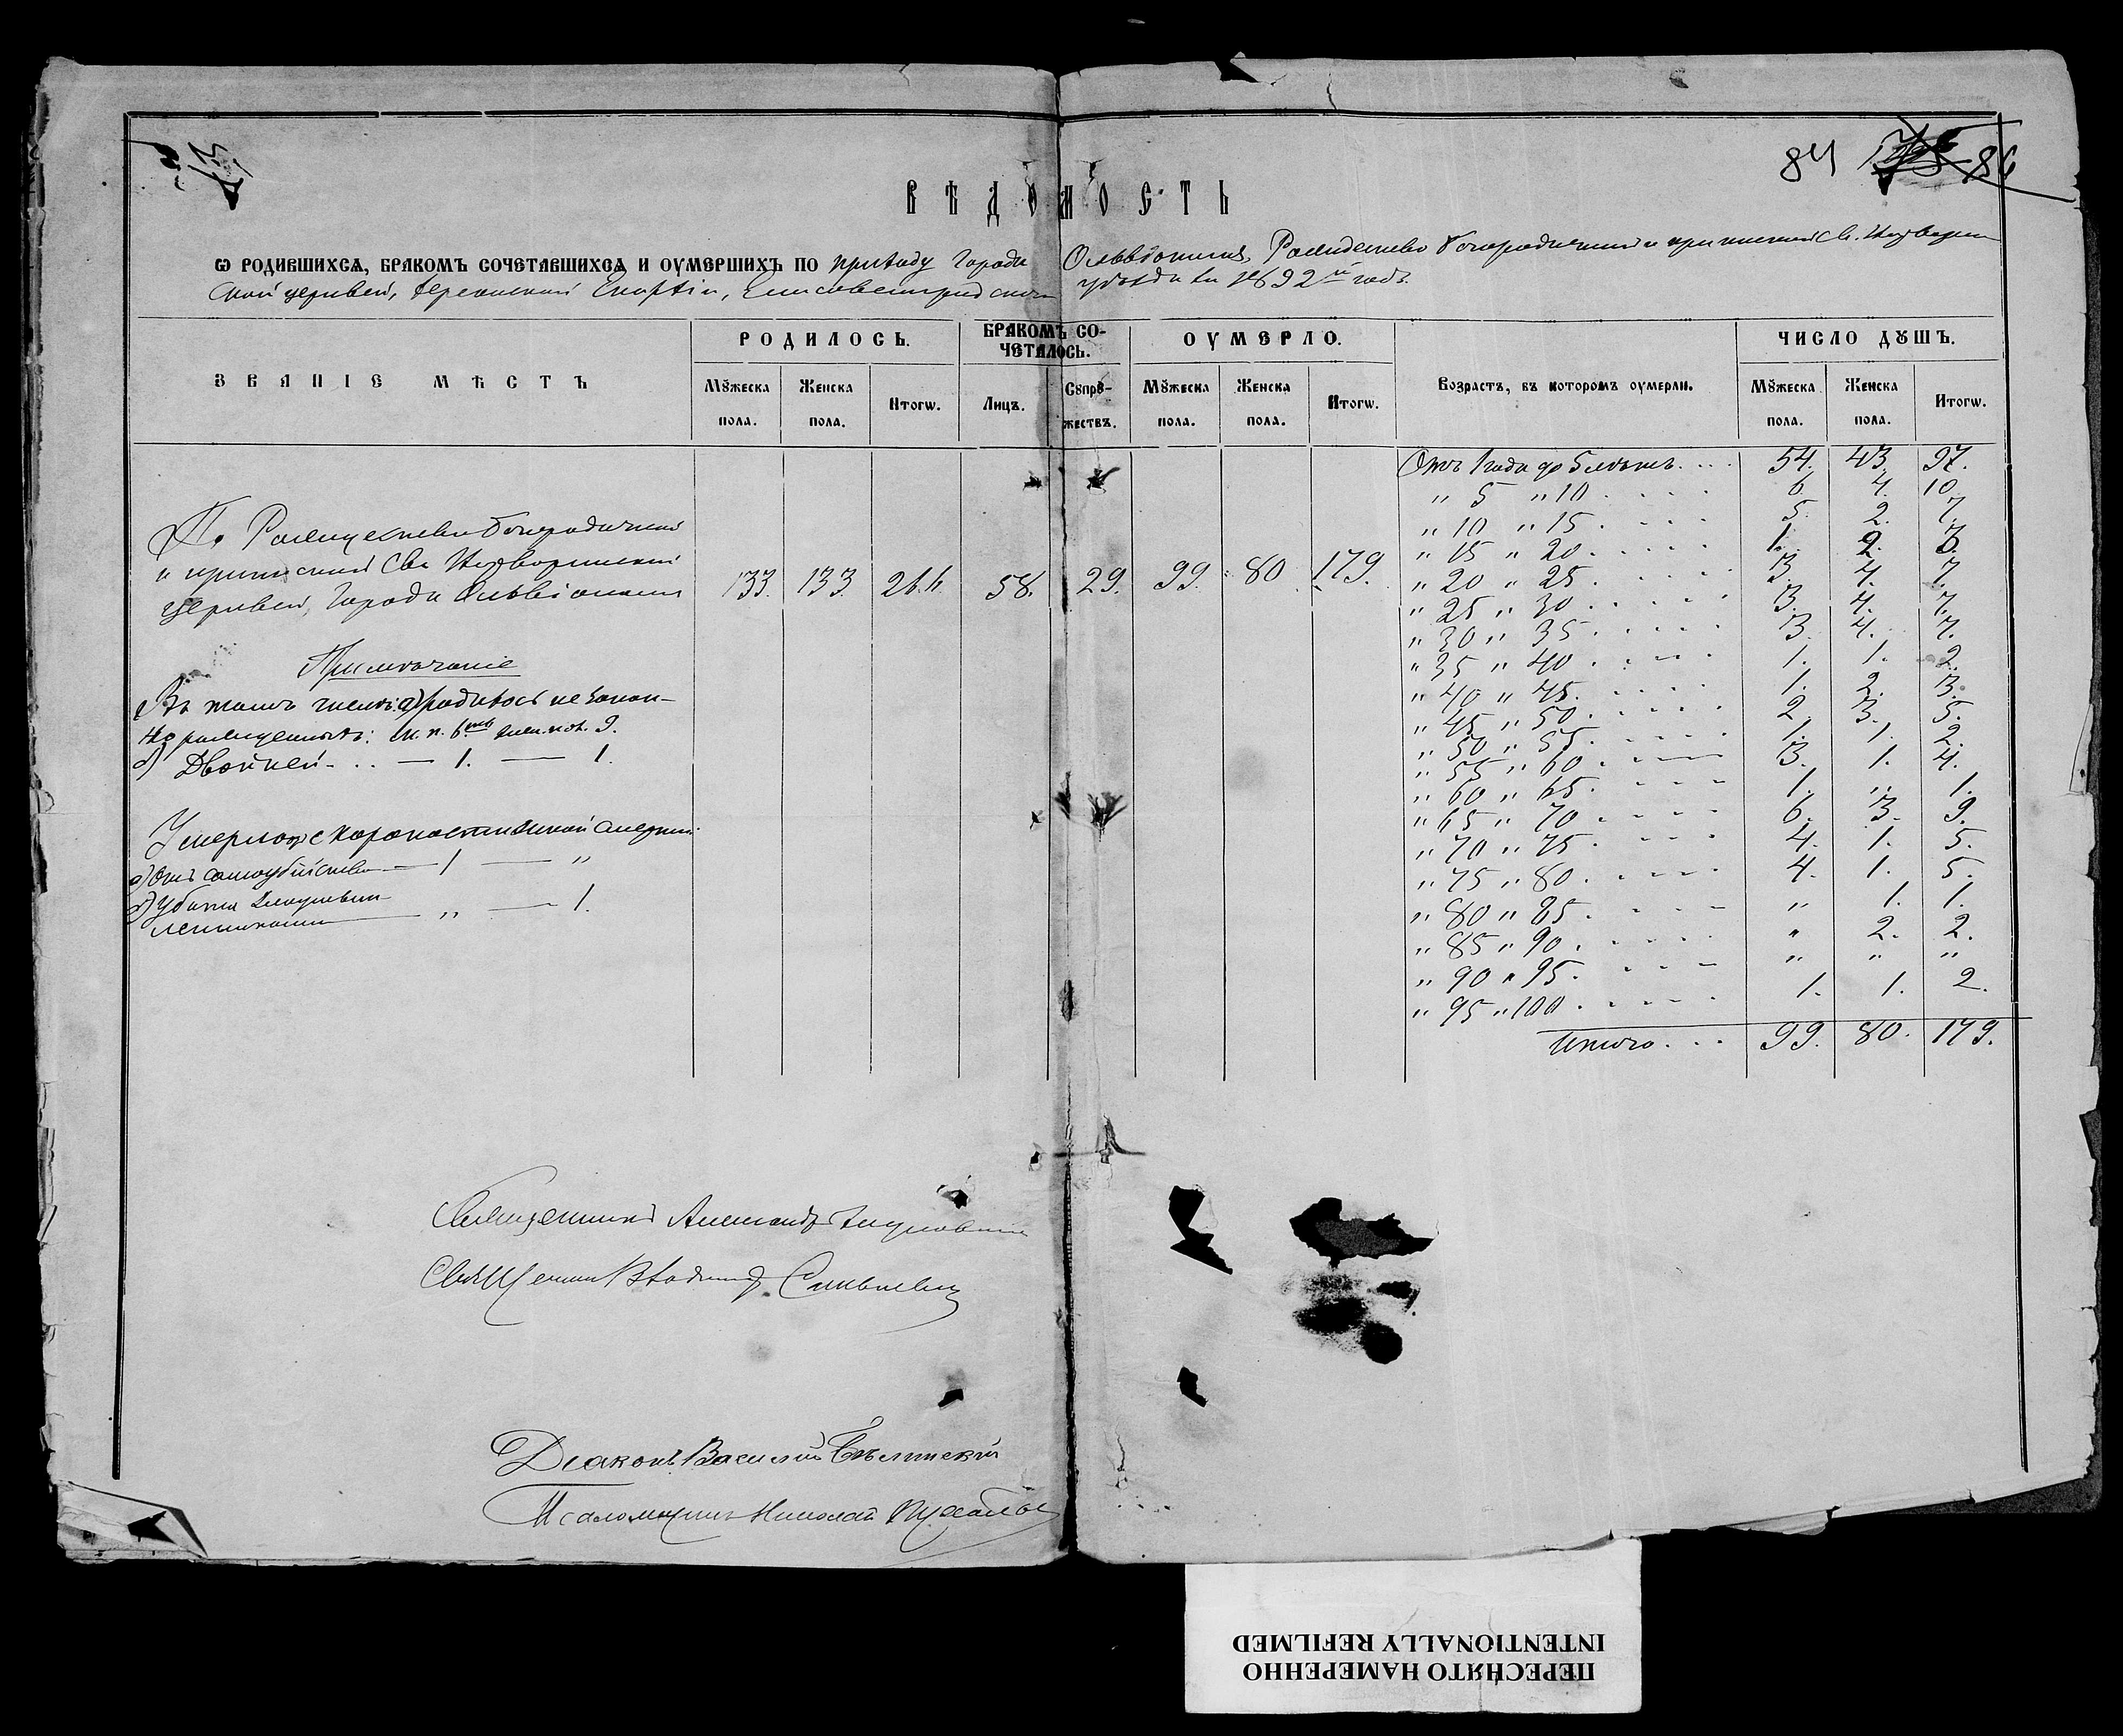 84 86
ВѢДОМОСТЬ
Ѡ РОДИВШИХСѦ, БРАКОМЪ СОЧЕТАВШИХСѦ И ОУМЕРШИХЪ ПО приходу города Ольвіополя, Рождество Богородичной и приписной Св. Нерукотворен
ской церквей, Херсонской Епархіи, Елисаветградскаго уѣзда за 1892й годъ.
ЗВАНІЕ МѢСТЪ
РОДИЛОСЬ.
БРАКОМЪ СО-
ЧЕТАЛОСЬ.
ОУМЕРЛО.
Возрастъ, въ которомъ оумерли.
ЧИСЛО ДꙋШЪ.
Мꙋжеска пола. Женска пола. Итогѡ. Лицъ. Сꙋпрꙋ-
жествъ. Мꙋжеска пола. Женска пола. Итогѡ. Мꙋжеска пола. Женска пола. Итогѡ.
По Рождество Богородичной
и приписной Св.
церквей, города Ольвіополя 133. 133. 266. 58. 29. 99. 80 179.
Примѣчаніе
Въ томъ числѣ: а) родилось незакон-
но рожденныхъ: м. п. 6. жен. пол. 9.
Двойней - .. — 1. — 1.
Умерло скоропостижной смертью:
а) Отъ самоубійства — 1 — "
" — 1.
Отъ 1 года до 5 лѣтъ. ... 54. 43. 97.
" 5 " 10 . . . . 6. 4. 10.
" 10 " 15 . . . . 5. 2. 7.
" 15 " 20 . . . . 1. 2. 3.
" 20 " 25 . . . . 3. 4. 7.
" 25 " 30 . . . . 3. 4. 7.
" 30 " 35 . . . . 3. 4. 7.
" 35 " 40 . . . . 1. 1. 2.
" 40 " 45 . . . . 1. 2. 3.
" 45 " 50 . . . . 2. 3. 5.
" 50 " 55 . . . . 1. 1. 2.
" 55 " 60 . . . . 3. 1. 4.
" 60 " 65 . . . . 1. " 1.
" 65 " 70 . . . . 6. 3. 9.
" 70 " 75 . . . . 4. 1. 5.
" 75 " 80 . . . . 4. 1. 5.
" 80 " 85 . . . . " 1. 1.
" 85 " 90 . . . . " 2. 2.
" 90 " 95 . . . . " " "
" 95 " 100 . . . . 1. 1. 2.
Итого . . . 99. 80. 179.
Священникъ Александръ
Священникъ Владиміръ
Діаконъ Василій Бѣлинскій
Псаломщикъ Николай
ПЕРЕСНЯТО НАМЕРЕННО
INTENTIONALLY REFILMED